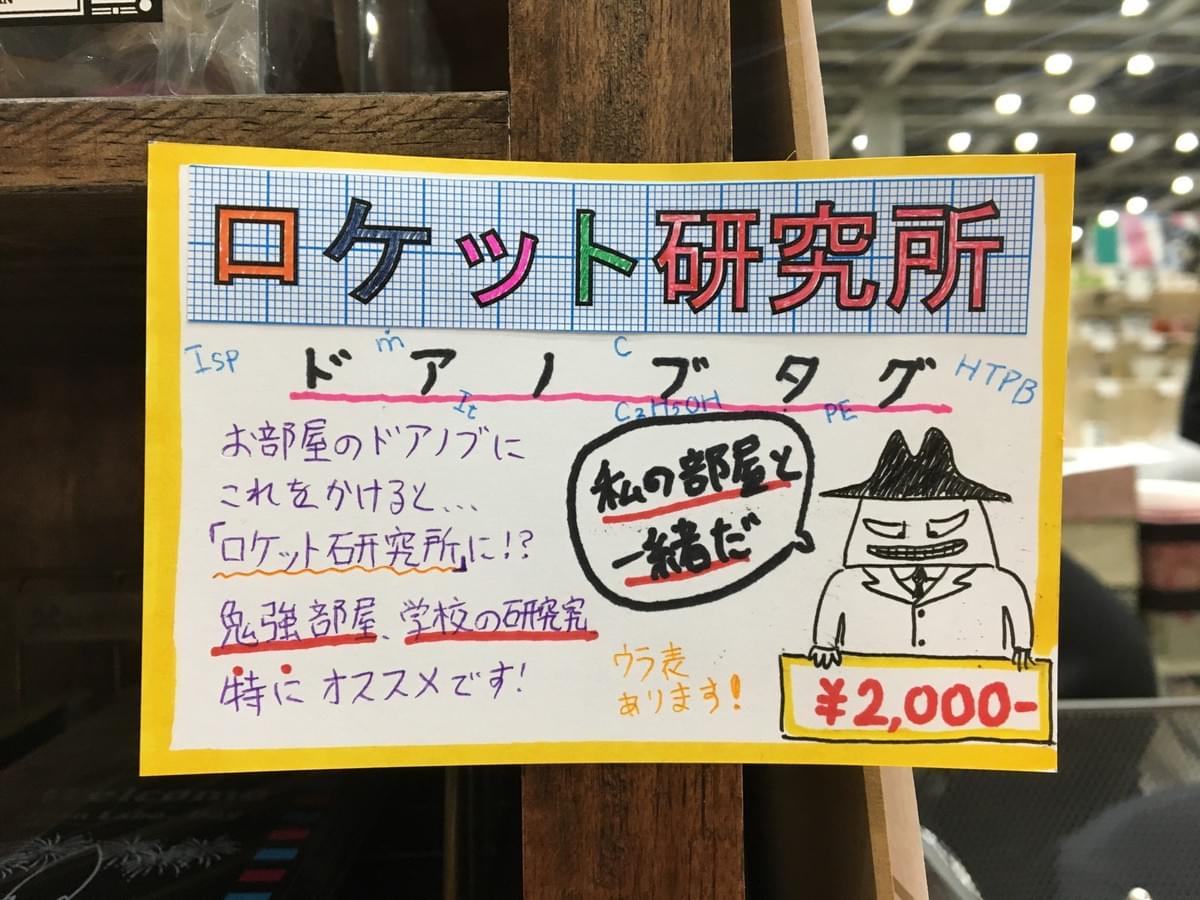 ロケット研究所
Isp ṁ C HTPB
ドアノブタグ
It C2H5OH PE
お部屋のドアノブに
これをかけると...
「ロケット研究所」に!?
勉強部屋、学校の研究究
特にオススメです!
私の部屋と
一緒だ
ウラ麦
あります!
¥2,000-
welcome